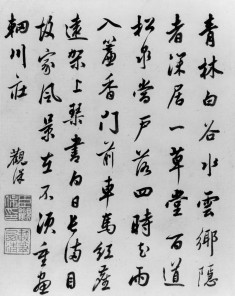 青林白谷水雲鄉隱
者深居一草堂百道
松泉當戶落四時花雨
入簾香門前車馬紅塵
遠架上琴書白日長滿目
故家風景在不須重畫
輞川莊